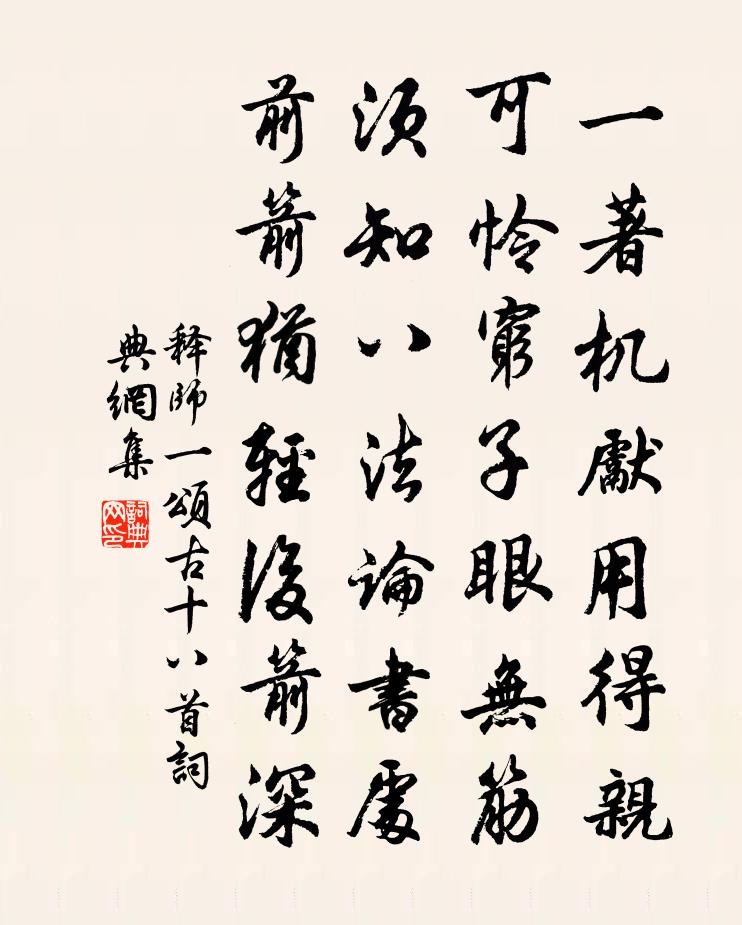 一著机獻用得親
可怜窮子眼無筋
須知八法論書處
前箭猶輕後箭深
释師一頌古十八首詞
典網集
詞典
网印